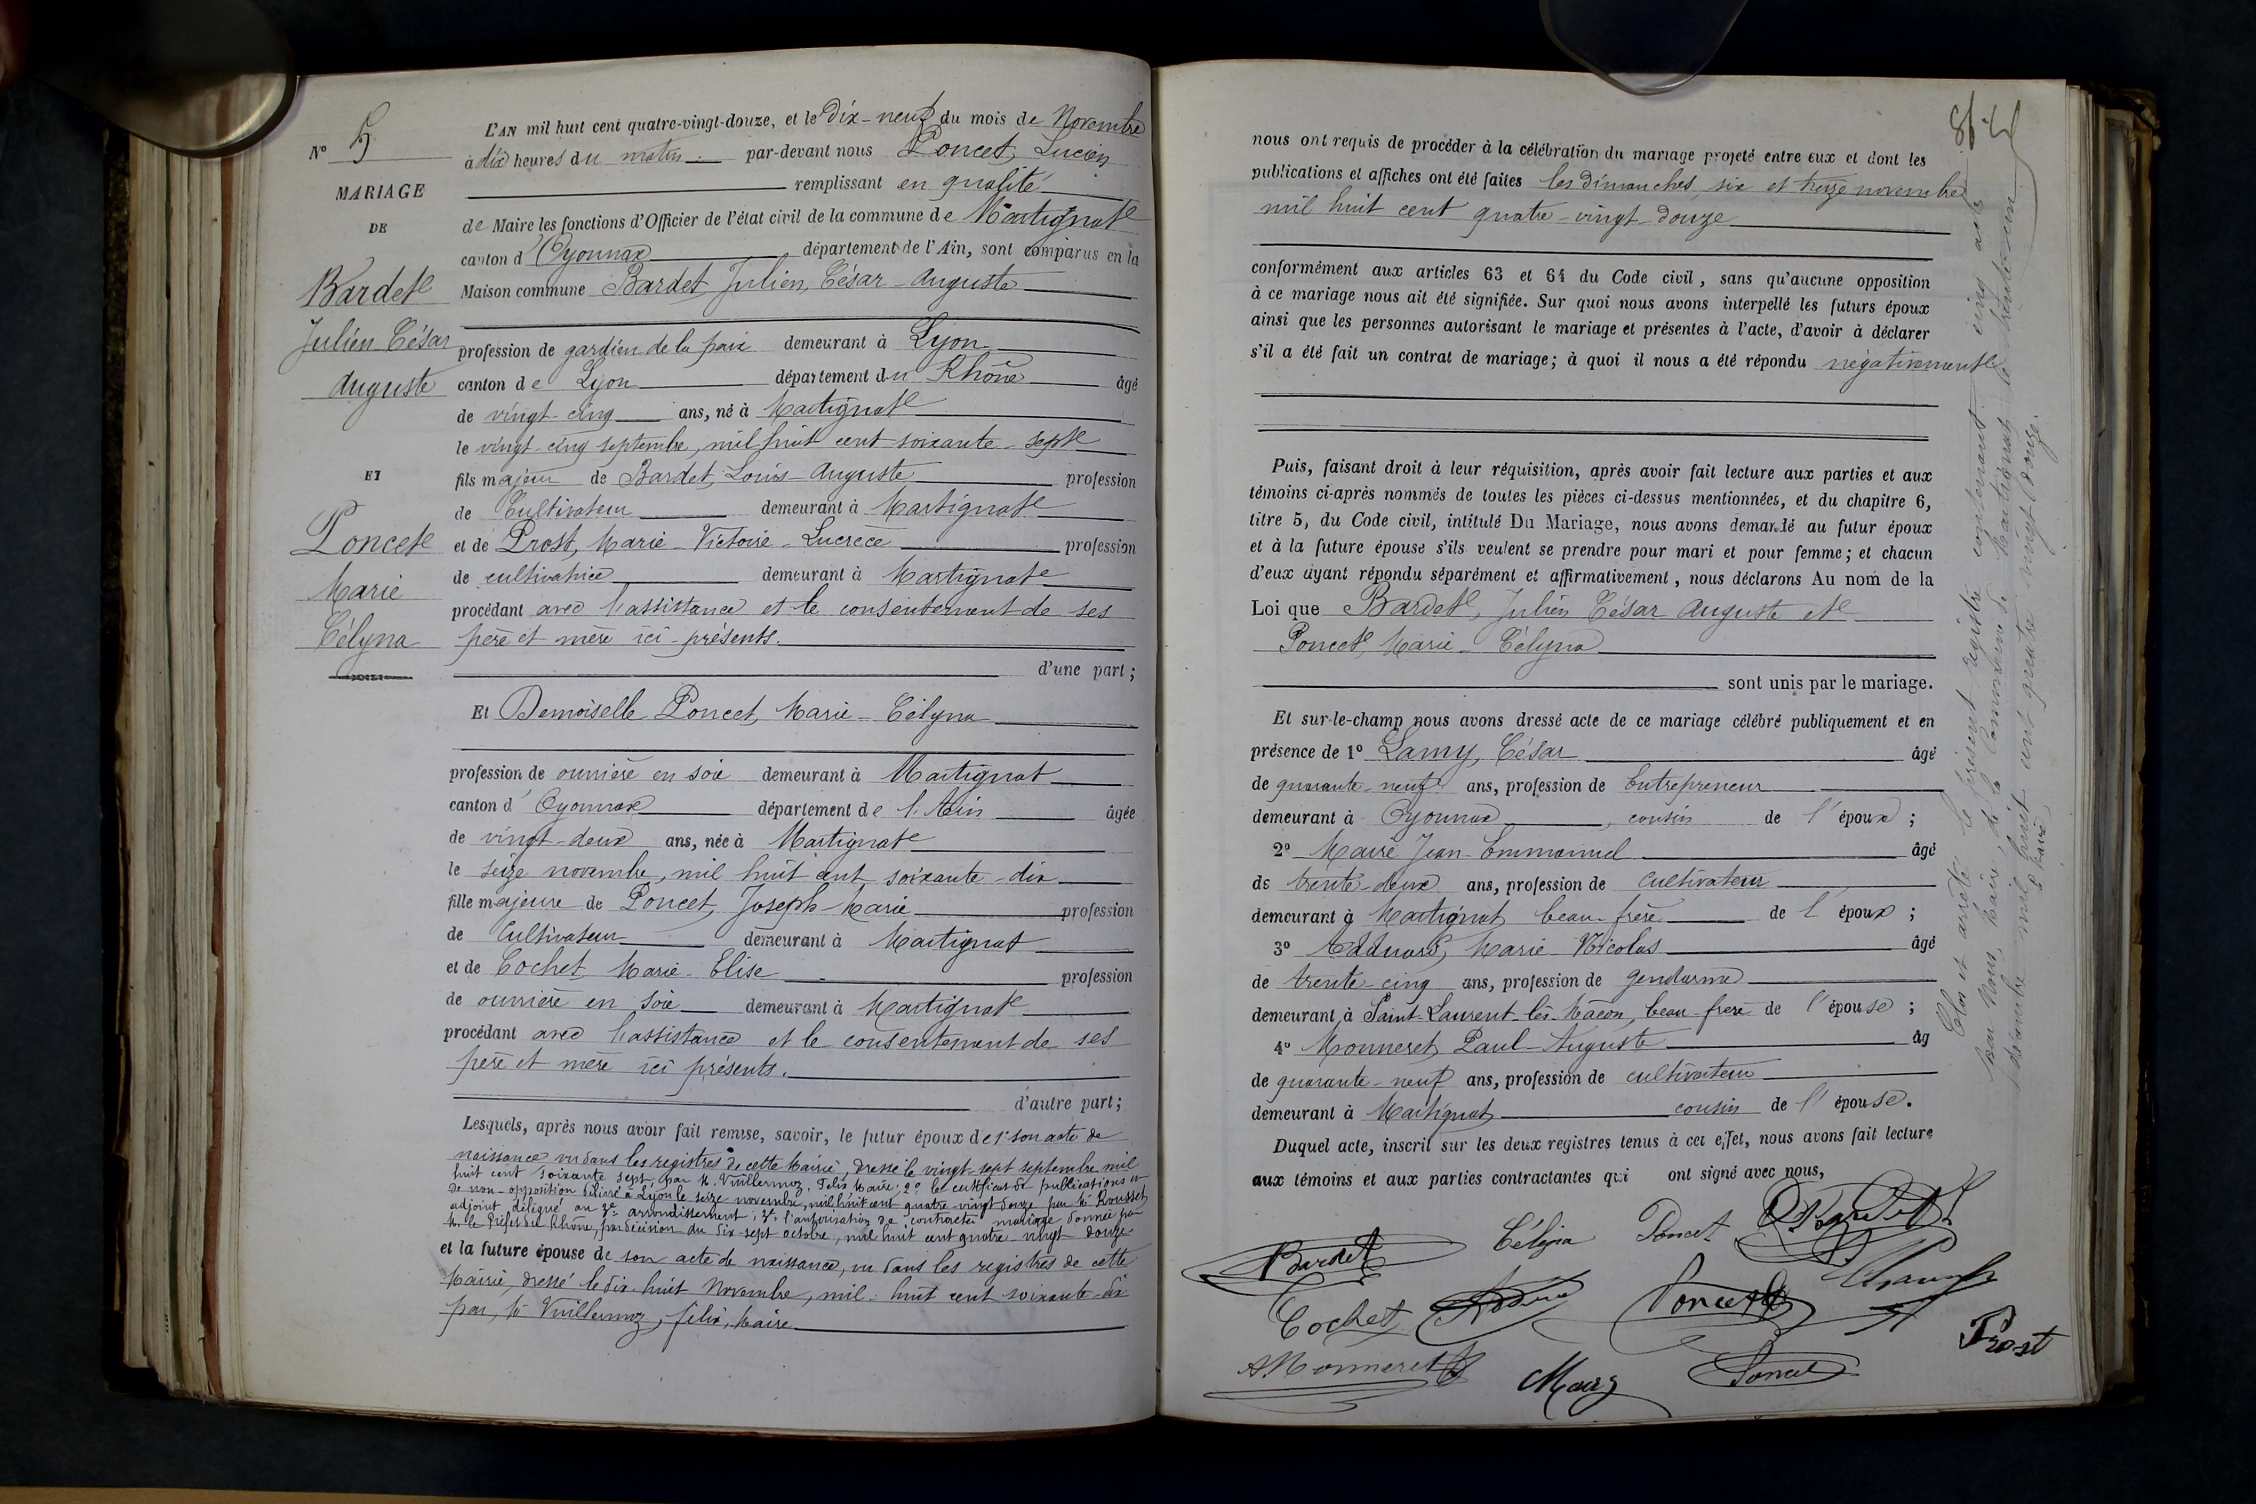 N° 5
MARIAGE
DE
Bardet
Julien César
Auguste
ET
Poncet
Marie
Célyna
L'AN mil huit cent quatre-vingt-douze, et le dix-neuf du mois de Novembre
à dix heures du matin par-devant nous Poncet, Lucien
remplissant en qualité
de Maire les fonctions d'Officier de l'état civil de la commune de Martignat
canton d'Oyonnax département de l'Ain, sont comparus en la
Maison commune Bardet Julien, César-Auguste
profession de gardien de la paix demeurant à Lyon
canton de Lyon département du Rhône âgé
de vingt-cinq ans, né à Martignat
le vingt-cinq septembre, mil huit cent soixante-sept
fils majeur de Bardet, Louis-Auguste profession
de Cultivateur demeurant à Martignat
et de Prost, Marie-Victoire-Lucrèce profession
de cultivatrice demeurant à Martignat
procédant avec l'assistance et le consentement de ses
père et mère ici-présents.
d'une part;
Et Demoiselle Poncet, Marie-Célyna
profession de ouvrière en soie demeurant à Martignat
canton d'Oyonnax département de l'Ain âgée
de vingt-deux ans, née à Martignat
le seize novembre, mil huit cent soixante-dix
fille majeure de Poncet, Joseph-Marie profession
de Cultivateur demeurant à Martignat
et de Cochet Marie-Elise profession
de ouvrière en soie demeurant à Martignat
procédant avec l'assistance et le consentement de ses
père et mère ici présents.
d'autre part;
Lesquels, après nous avoir fait remise, savoir, le futur époux de 1° son acte de
naissance vu dans les registres de cette Mairie, dressé le vingt-sept septembre mil
huit cent soixante sept, par M. Vuillermoz, Félix Maire; 2° le certificat de publications et
de non-opposition délivré à Lyon le seize novembre, mil huit cent quatre-vingt-douze par M. Rousset
adjoint délégué au arrondissement; 3° l'autorisation de contracter mariage donnée par
M. le Préfet du Rhône, par décision du dix-sept octobre, mil huit cent quatre-vingt-douze
et la future épouse de son acte de naissance, vu dans les registres de cette
Mairie, dressé le dix-huit Novembre, mil huit cent soixante-dix
par M. Vuillermoz, félix, Maire
nous ont requis de procéder à la célébration du mariage projeté entre eux et dont les
publications et affiches ont été faites les dimanches, six et treize novembre
mil huit cent quatre-vingt-douze
conformément aux articles 63 et 64 du Code civil, sans qu'aucune opposition
à ce mariage nous ait été signifiée. Sur quoi nous avons interpellé les futurs époux
ainsi que les personnes autorisant le mariage et présentes à l'acte, d'avoir à déclarer
s'il a été fait un contrat de mariage; à quoi il nous a été répondu négativement
Puis, faisant droit à leur réquisition, après avoir fait lecture aux parties et aux
témoins ci-après nommés de toutes les pièces ci-dessus mentionnées, et du chapitre 6,
titre 5, du Code civil, intitulé Du Mariage, nous avons demandé au futur époux
et à la future épouse s'ils veulent se prendre pour mari et pour femme; et chacun
d'eux ayant répondu séparément et affirmativement, nous déclarons Au nom de la
Loi que Bardet, Julien César Auguste et
Poncet, Marie-Célyna
sont unis par le mariage.
Et sur-le-champ nous avons dressé acte de ce mariage célébré publiquement et en
présence de 1° Lamy, César âgé
de quarante-neuf ans, profession de Entrepreneur
demeurant à Oyonnax, cousin de l'époux;
2° Maire Jean-Emmanuel âgé
de trente-deux ans, profession de cultivateur
demeurant à Martignat beau-frère de l'époux;
3° Marie Nicolas âgé
de trente-cinq ans, profession de gendarme
demeurant à Saint-Laurent-lès-Mâcon, beau-frère de l'épouse;
4° Monneret, Paul-Auguste âg
de quarante-neuf ans, profession de cultivateur
demeurant à Martignat cousin de l'épouse.
Duquel acte, inscrit sur les deux registres tenus à cet effet, nous avons fait lecture
aux témoins et aux parties contractantes qui ont signé avec nous,
Bardet Célyna Poncet Bardet
Cochet Poncet
Prost
A. Monneret Poncet
Clos et arrêté le présent registre contenant cinq actes
par Nous, Maire, de la Commune de Martignat, le trente-un
décembre mil huit cent quatre-vingt-douze.
Le Maire